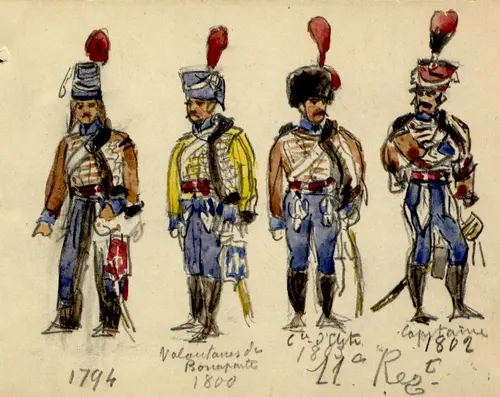 1794
Volontaires de
Bonaparte
1800
Cie d'Elite
1800
Capitaine
1802
11e Regt